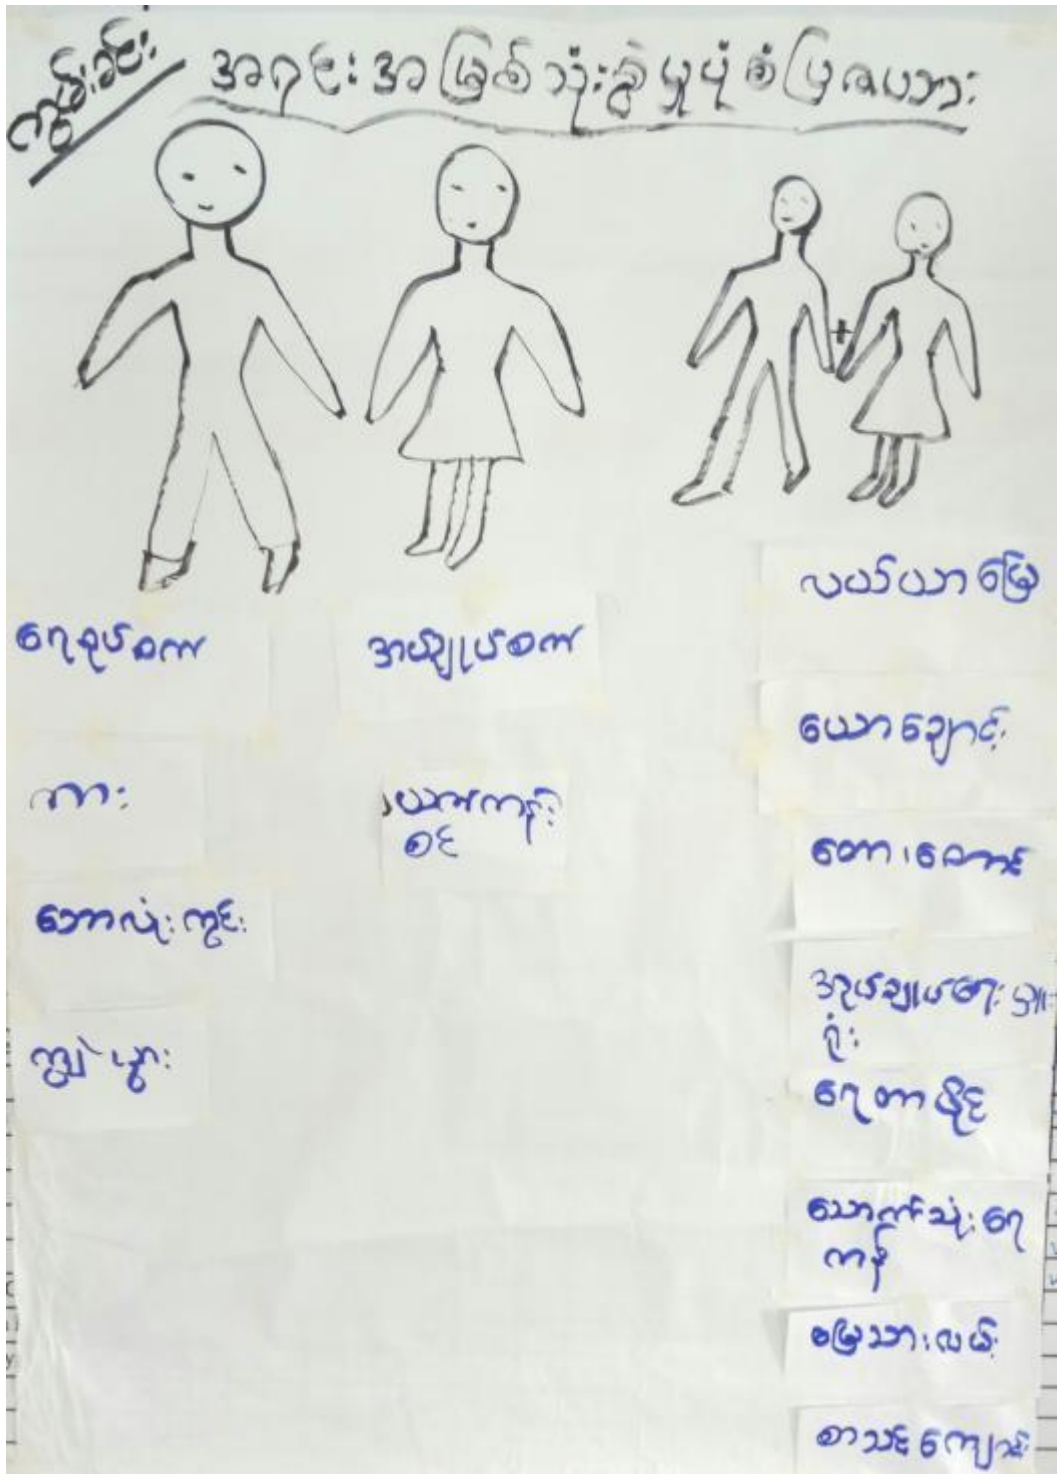 ကွမ်းခင်း
အရင်းအမြစ်သုံးစွဲမှုပုံစံပြဇယား
ရေစုပ်စက်
ကား
ဘောလုံးကွင်း
ကျွဲ၊ နွား
အပ်ချုပ်စက်
ယက်ကန်းစင်
လယ်ယာမြေ
ယောချောင်း
တော၊တောင်
အုပ်ချုပ်ရေးမှူး
ရုံး
ရေတာပိုင်
သောက်သုံးရေ
ကန်
မြေသားလမ်း
စာသင်ကျောင်း